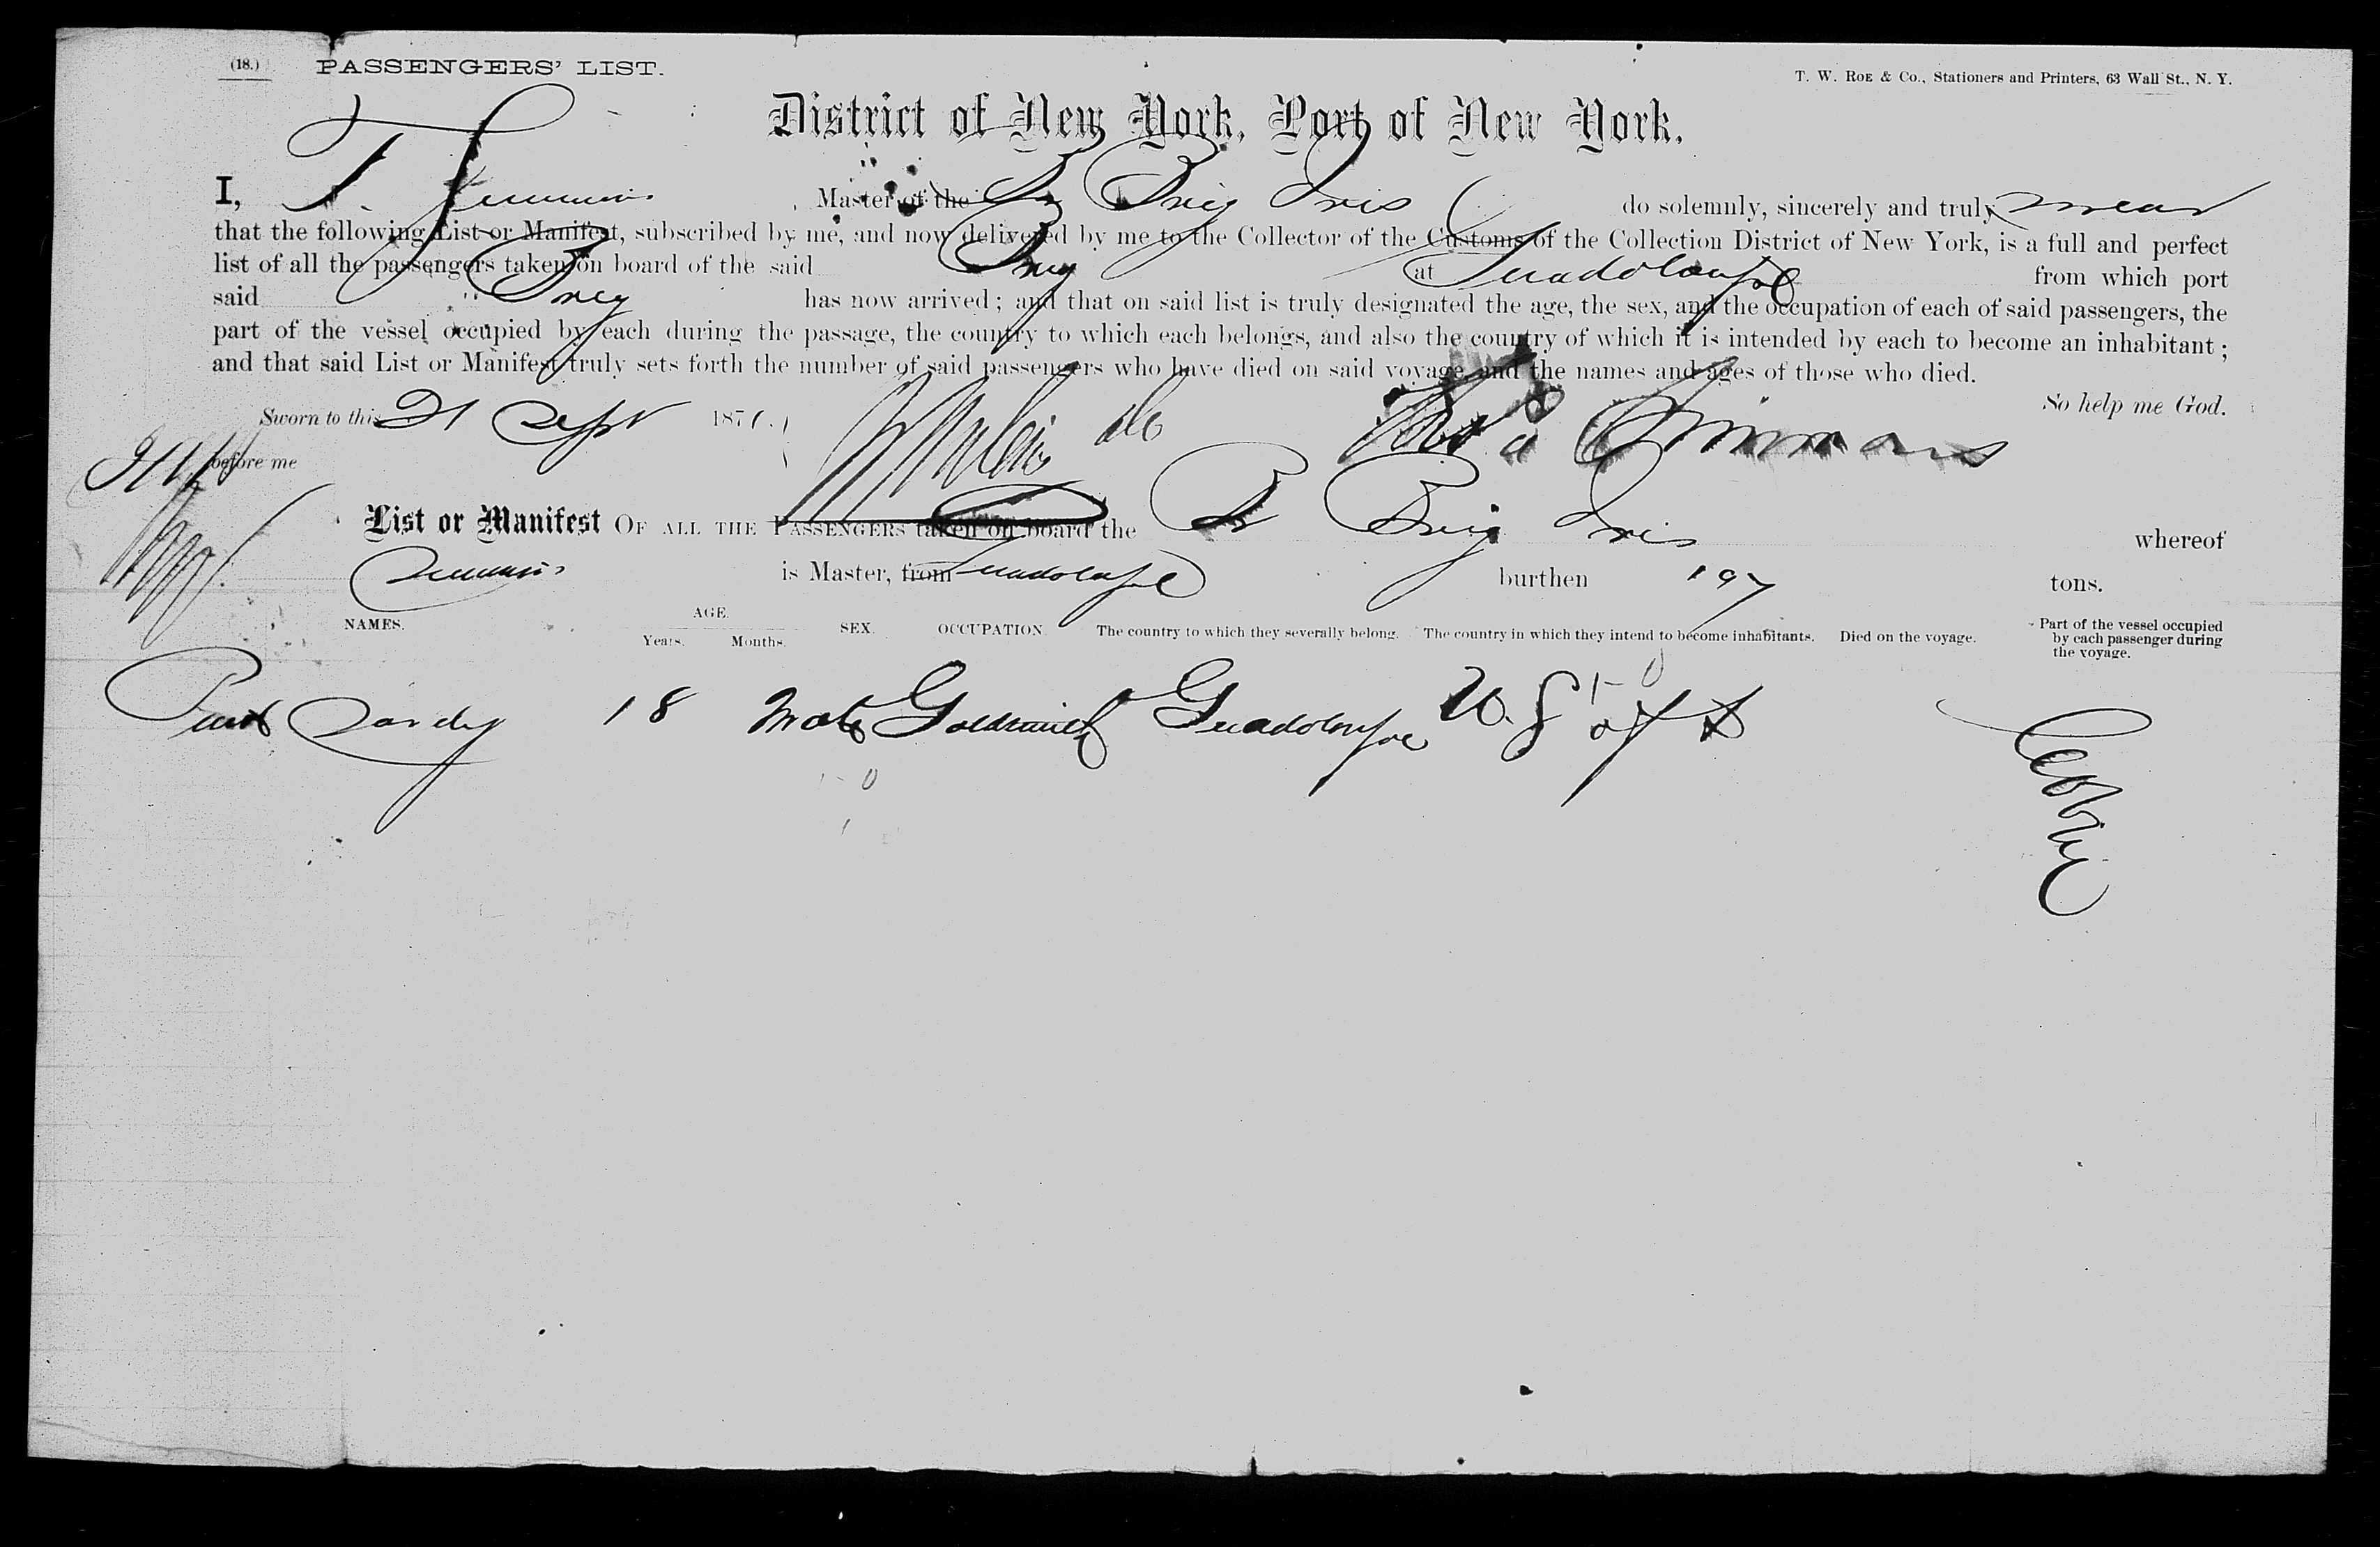 (18.) PASSENGERS' LIST.
T. W. ROE & Co., Stationers and Printers, 63 Wall St., N. Y.
District of New York, Port of New York.
I, T. Simmons, Master of the Br Brig Iris do solemnly, sincerely and truly swear
that the following List or Manifest, subscribed by me, and now delivered by me to the Collector of the Customs of the Collection District of New York, is a full and perfect
list of all the passengers taken on board of the said Brig at Guadoloupe from which port
said Brig has now arrived; and that on said list is truly designated the age, the sex, and the occupation of each of said passengers, the
part of the vessel occupied by each during the passage, the country to which each belongs, and also the country of which it is intended by each to become an inhabitant;
and that said List or Manifest truly sets forth the number of said passengers who have died on said voyage and the names and ages of those who died.
So help me God.
Sworn to this 21 Sept 1871. Simmons
before me
List or Manifest OF ALL THE PASSENGERS taken on board the Br Brig Iris whereof
Simmons is Master, from Guadoloupe burthen 197 tons.
NAMES. AGE. Years. Months. SEX. OCCUPATION. The country to which they severally belong. The country in which they intend to become inhabitants. Died on the voyage. Part of the vessel occupied by each passenger during the voyage.
18 Male Goldsmith Guadoloupe U. S of A Cabin